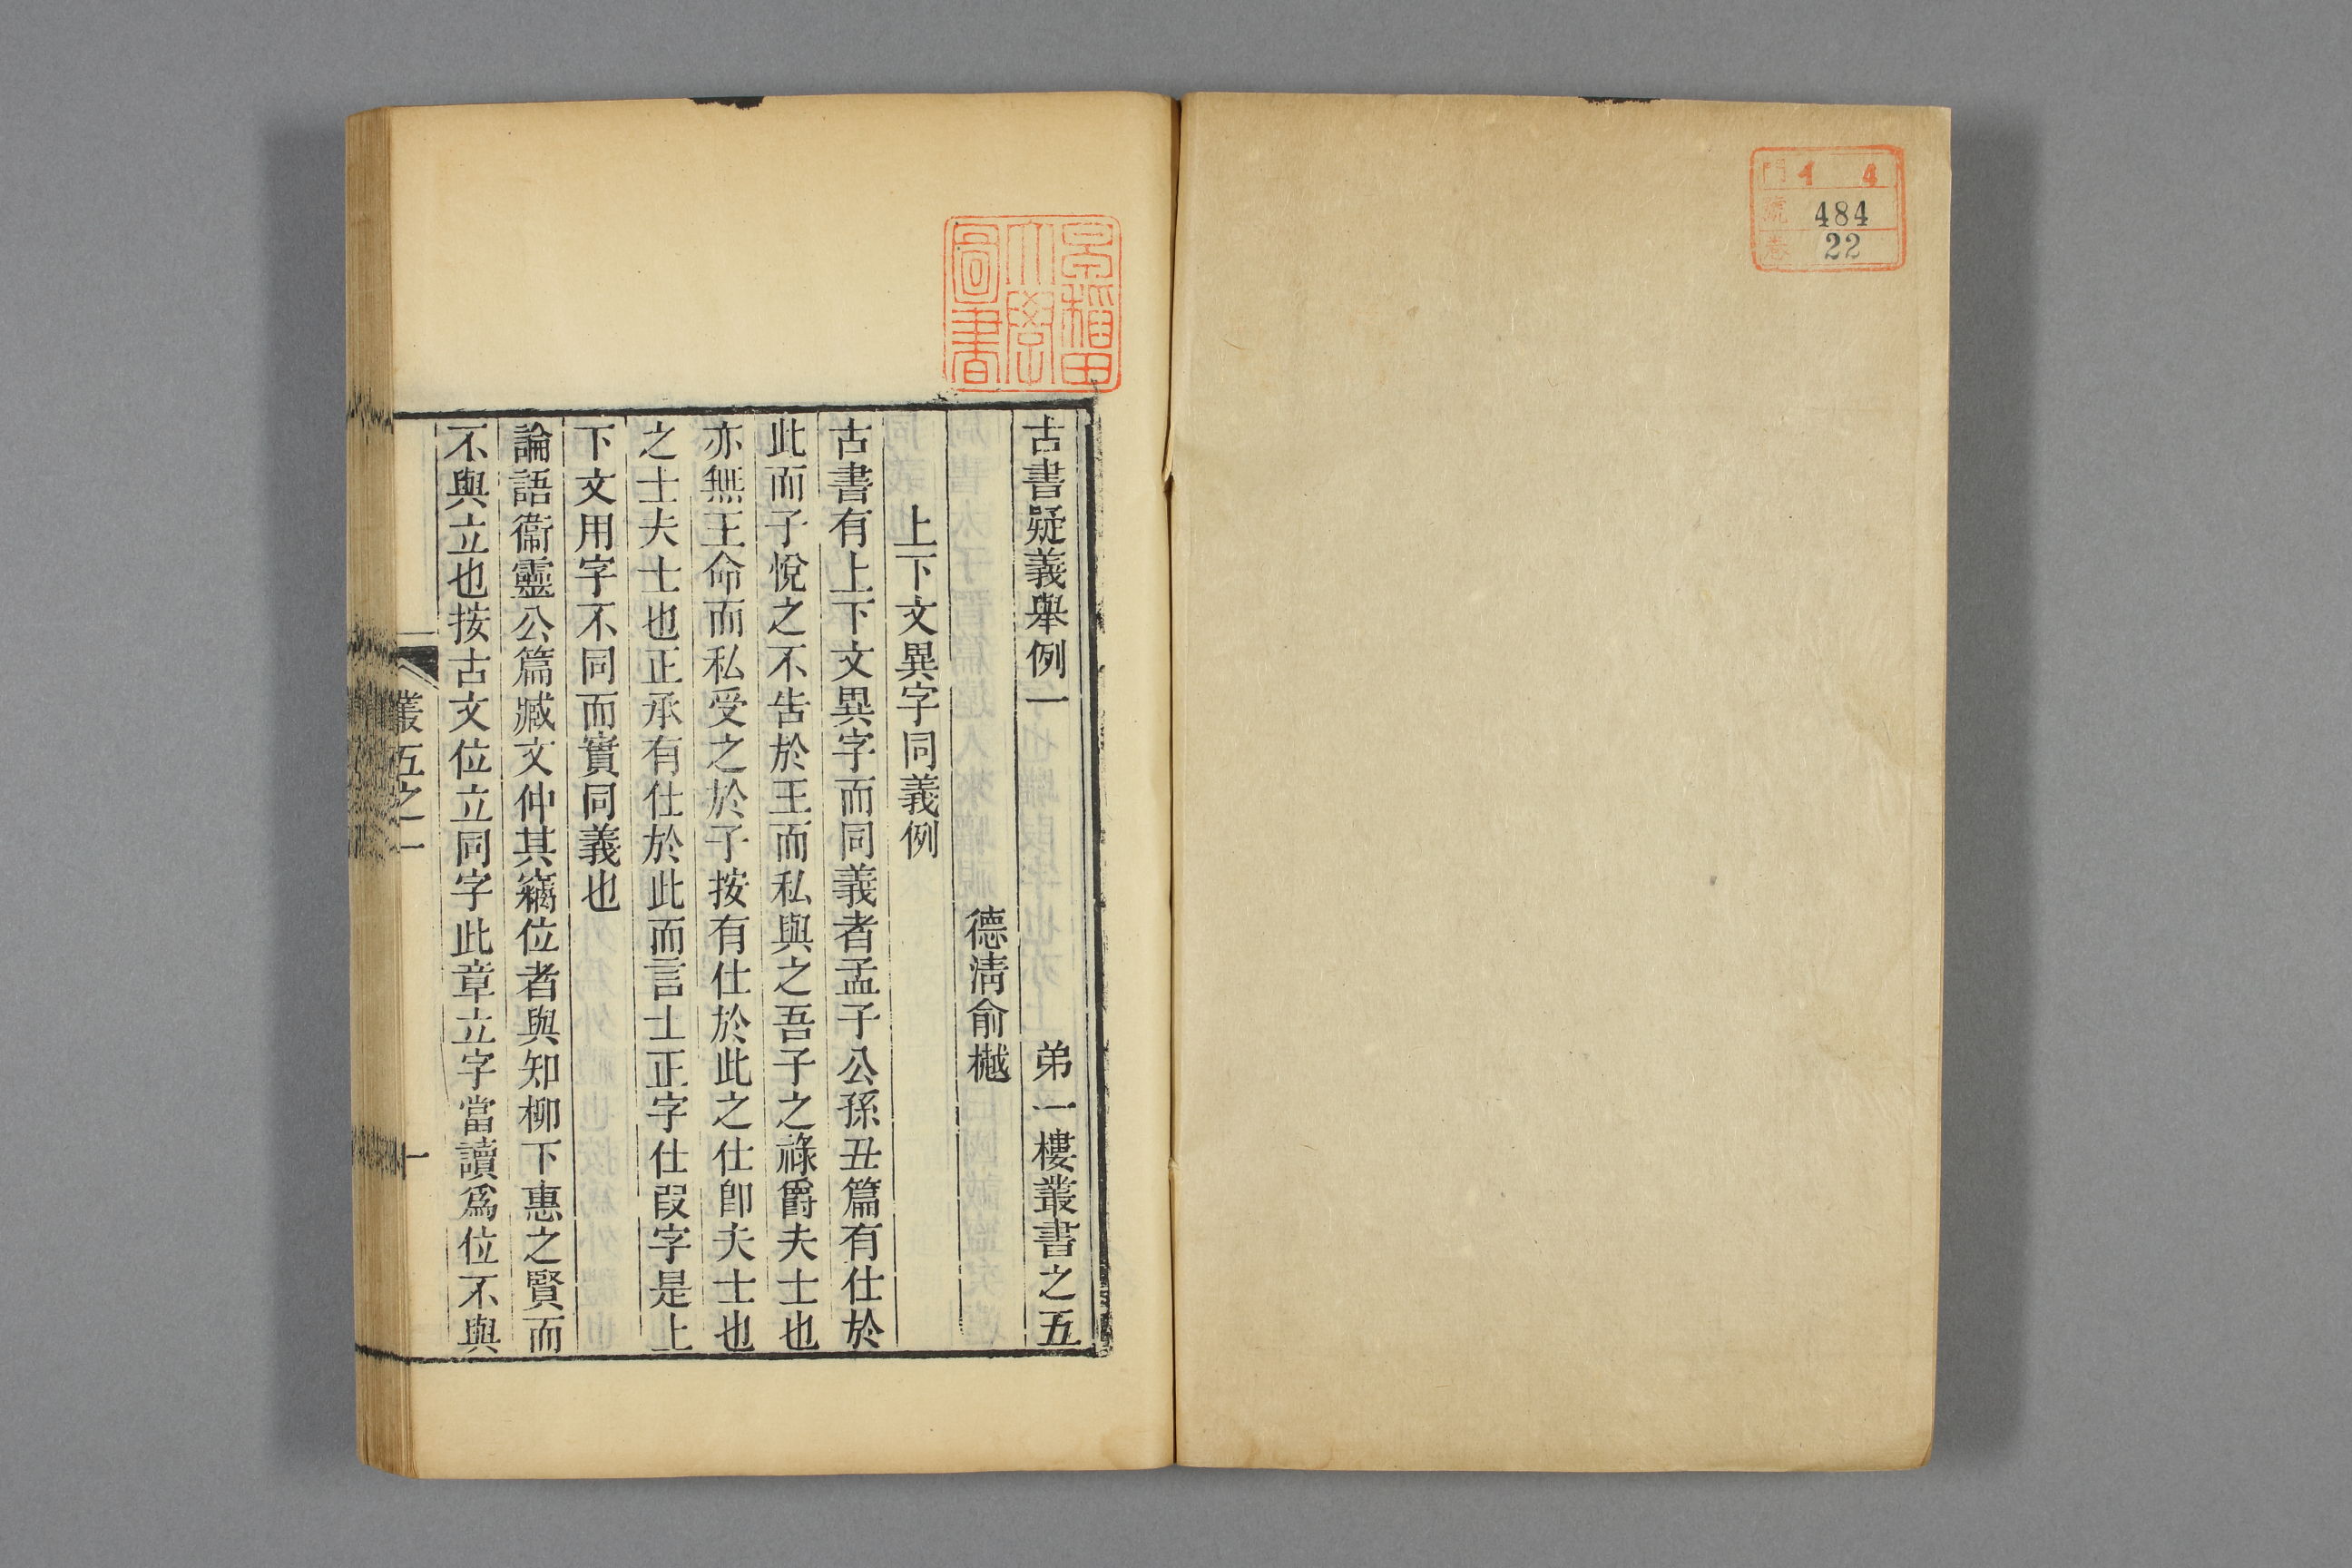 門 14
號 484
卷 22
早稻田
大學
圖書
古書疑義舉例一 弟一樓叢書之五
德清俞樾
上下文異字同義例
古書有上下文異字而同義者孟子公孫丑篇有仕於
此而子悅之不告於王而私與之吾子之祿爵夫士也
亦無王命而私受之於子按有仕於此之仕卽夫士也
之士夫士也正承有仕於此而言士正字仕叚字是上
下文用字不同而實同義也
論語衞靈公篇臧文仲其竊位者與知柳下惠之賢而
不與立也按古文位立同字此章立字當讀爲位不與
叢五之一
一